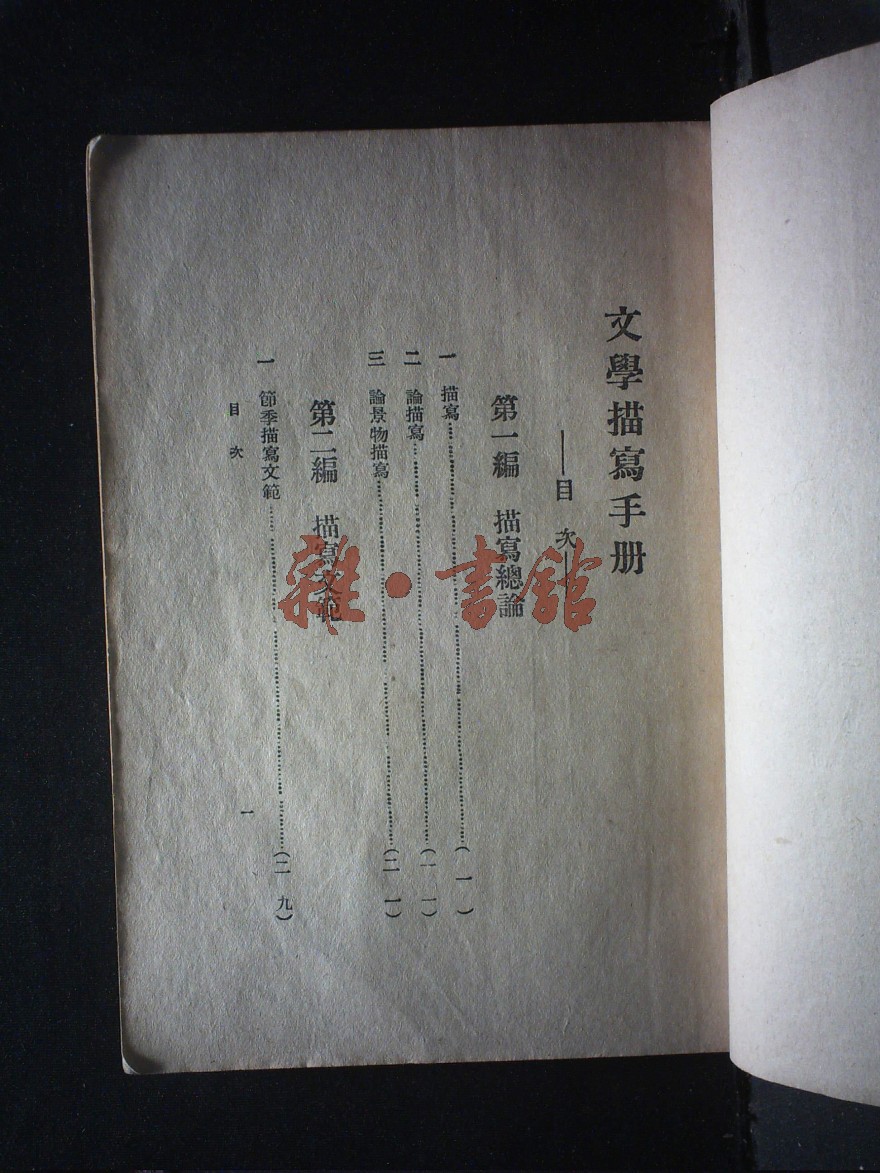 文學描寫手册
——目次——
第一編 描寫總論
一 描寫……(一)
二 論描寫……(一一)
三 論景物描寫……(二一)
第二編 描寫文範
一 節季描寫文範……(二九)
目次
一
雜·書館